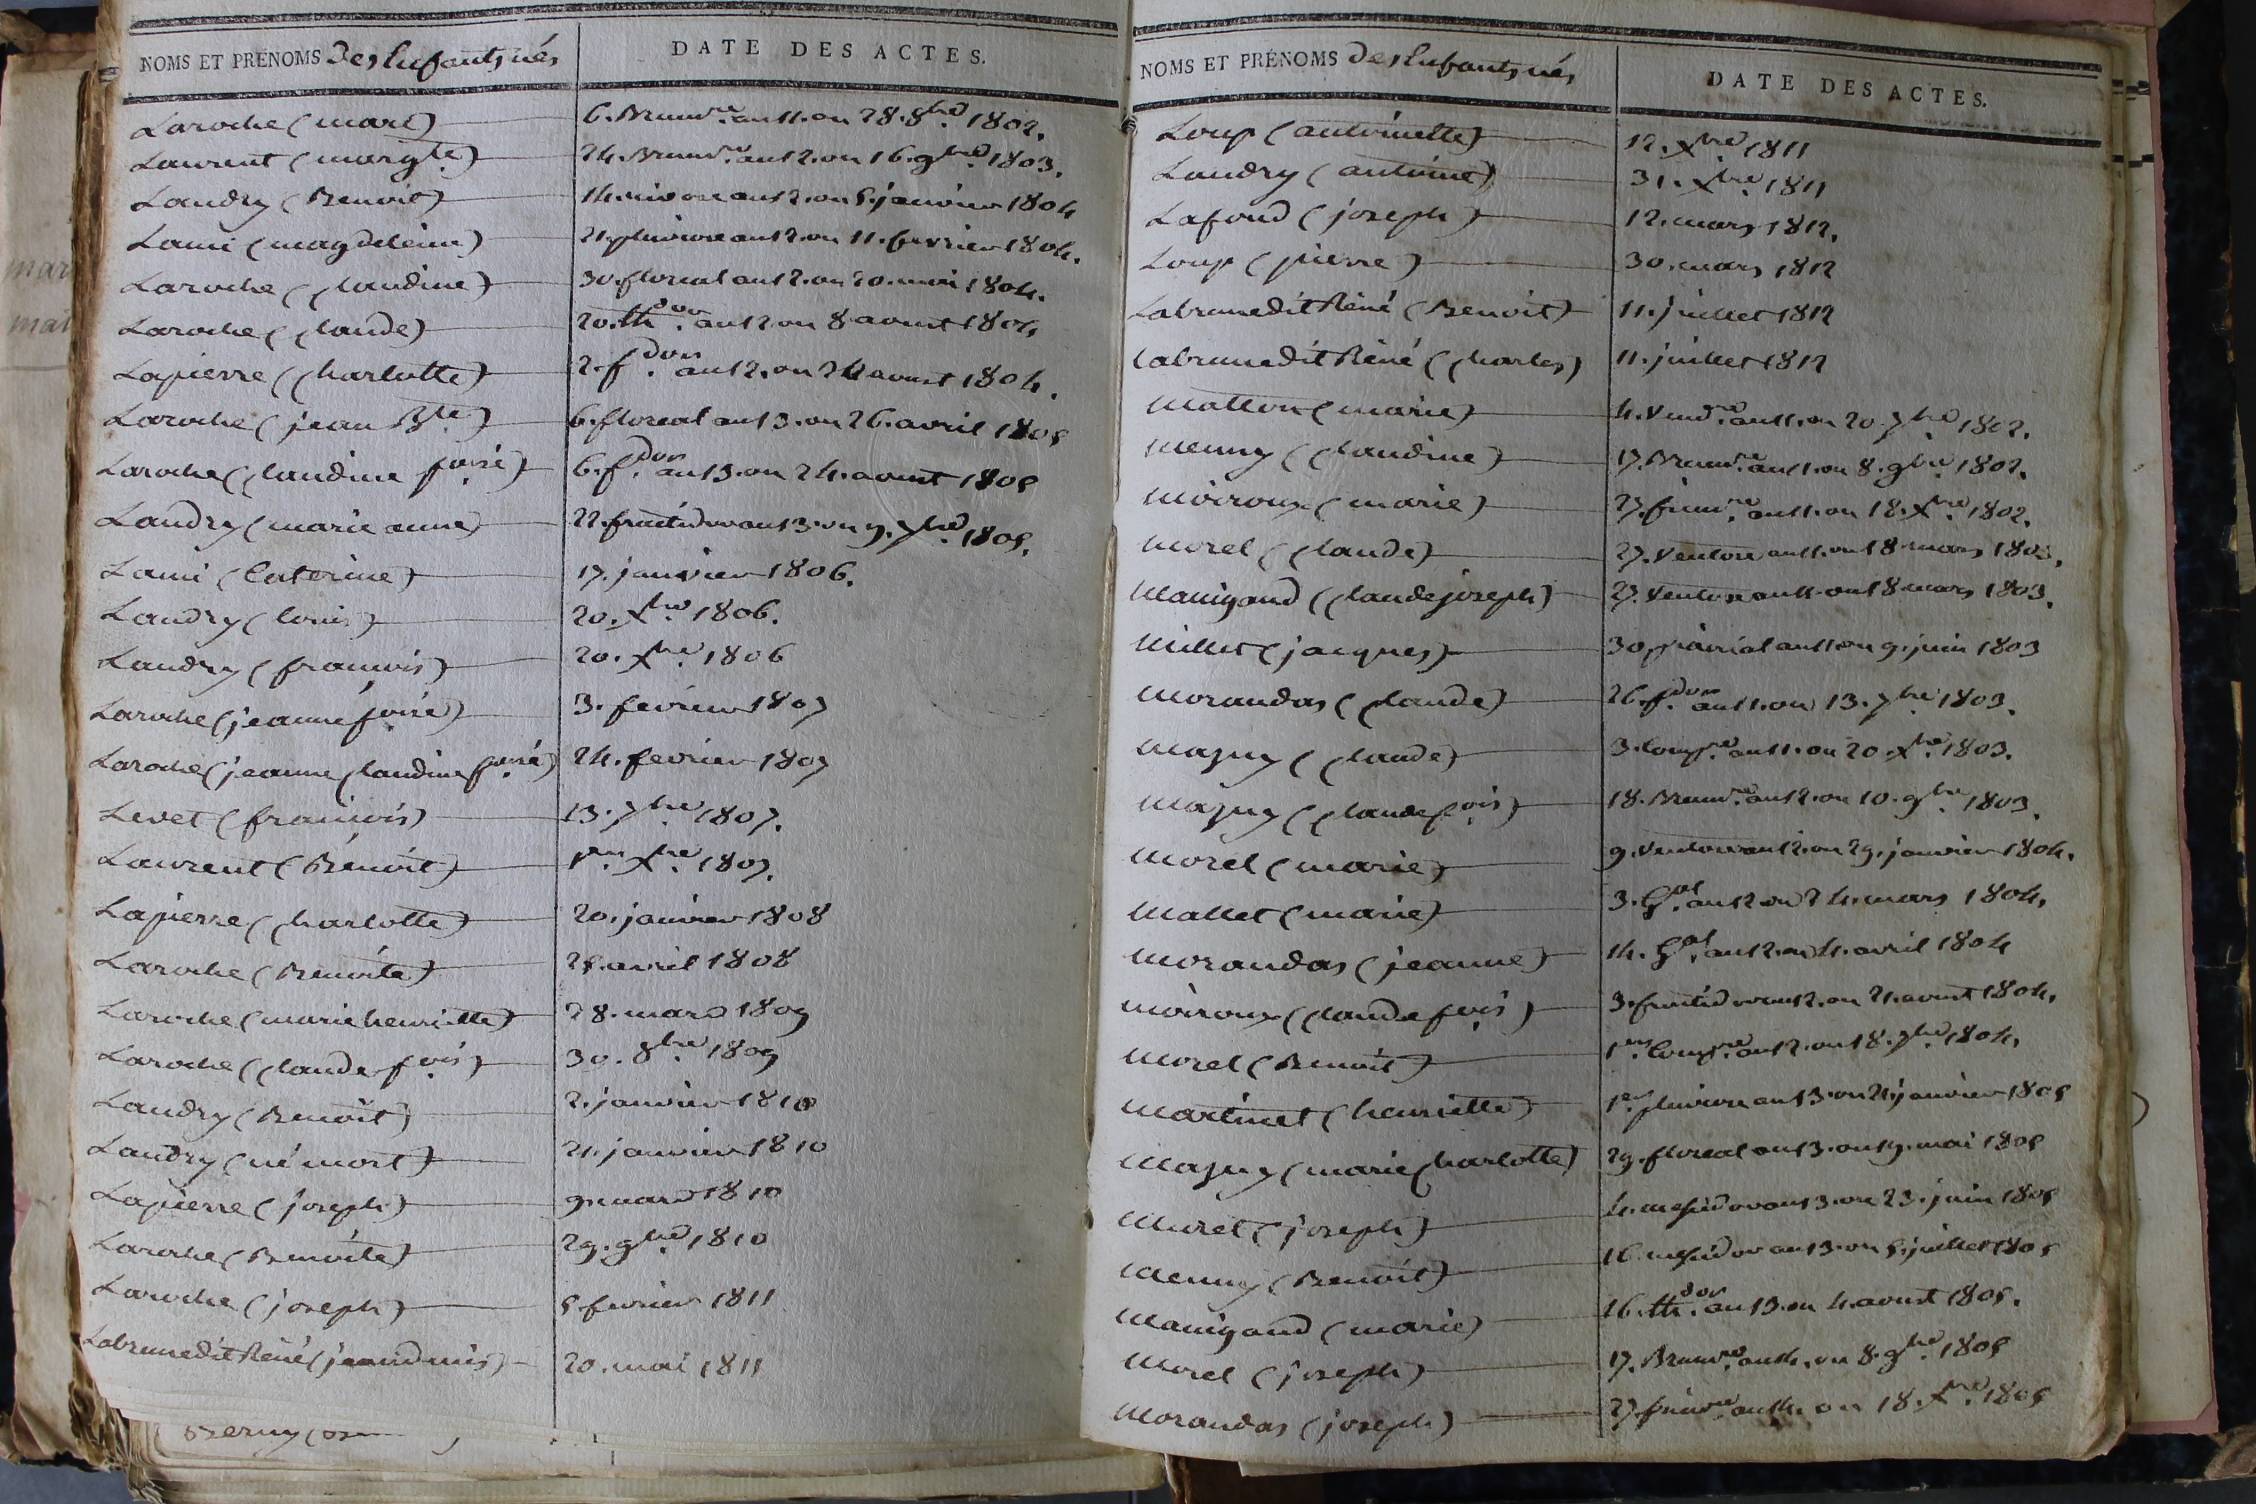 NOMS ET PRÉNOMS des Enfants nés
DATE DES ACTES.
Laroche (marc) 6. Brum.re an 11. ou 28. 8bre 1802.
Laurent (margte) 24. Brum.re an 12. ou 16. 9bre 1803.
Landry (Benoit) 14. nivose an 12. ou 5. janvier 1804
Lami (magdeleine) 21. pluviose an 12. ou 11. fevrier 1804.
Laroche (Claudine) 30. floreal an 12. ou 20. mai 1804.
Laroche (Claude) 20. th.dor an 12 ou 8 aoust 1804
Lapierre (Charlotte) 2. f.dor an 12. ou 24 aoust 1804.
Laroche (jean Bte) 6. floreal an 13. ou 26. avril 1805
Laroche (Claudine foisé) 6. f.dor an 13. ou 24. aoust 1805
Landry (marie anne) 22. fructidor an 13. ou 9. 7bre 1805.
Lami (Caterine) 17. janvier 1806.
Landry (louis) 20. Xbre 1806.
Landry (francois) 20. Xbre 1806
Laroche (jeanne foise) 3. fevrier 1807
Laroche (jeanne Claudine foisé) 24. fevrier 1807
Levet (francois) 13. 7bre 1807.
Laurent (Benoit) 1er Xbre 1807.
Lapierre (Charlotte) 20. janvier 1808
Laroche (Benoite) 25. avril 1808
Laroche (marie henriette) 28. mars 1809
Laroche (Claude fois) 30. 8bre 1809
Landry (Benoit) 2. janvier 1810
Landry (né mort) 21. janvier 1810
Lapierre (joseph) 9. mars 1810
Laroche (Benoite) 29. 9bre 1810
Laroche (joseph) 5 fevrier 1811
Labrune dit Réné (jean denis) 20. mai 1811
NOMS ET PRÉNOMS des Enfants nés
DATE DES ACTES.
Loup (antoinette) 12. Xbre 1811
Landry (antoine) 31. Xbre 1811
Lafond (joseph) 12. mars 1812.
Loup (pierre) 30. mars 1812
Labrune dit Réné (Benoit) 11. juillet 1812
Labrune dit Réné (Charles) 11. juillet 1812
Matton (marie) 4. Vend.re an 11. ou 20. 7bre 1802.
Menny (Claudine) 17. Brum.re an 11. ou 8. 9bre 1802.
Moiroux (marie) 27. frim.re an 11. ou 18. Xbre 1802.
Morel (Claude) 27. Ventose an 11. ou 18 mars 1803.
Manigand (Claude joseph) 27. Ventose an 11. ou 18 mars 1803.
Millet (jacques) 30 prairial an 11 ou 9. juin 1803
Morandas (Claude) 26. f.dor an 11. ou 13. 7bre 1803.
Majny (Claude) 3. Comp.re an 11. ou 20. Xbre 1803.
Majny (Claude fois) 18. Brum.re an 12. ou 10. 9bre 1803.
Morel (marie) 9. Ventose an 12. ou 29. janvier 1804.
Mallet (marie) 3. G.al an 12 ou 24. mars 1804.
Morandas (jeanne) 14. G.al an 12. ou 4. avril 1804
Moiroux (Claude fois) 3. fructidor an 12. ou 21. aoust 1804.
Morel (Benoit) 1er Comp.re an 12. ou 18. 7bre 1804.
Martinet (henriette) 1er pluviose an 13. ou 21 janvier 1805
Majny (marie Charlotte) 29. floreal an 13. ou 19. mai 1805
Muret (joseph) 4. messidor an 13. ou 23. juin 1805
Menny (Benoit) 16. messidor an 13. ou 5. juillet 1805
Manigand (marie) 16. th.dor an 13. ou 4. aoust 1805.
Morel (joseph) 17. Brum.re an 14. ou 8. 9bre 1805
Morandas (joseph) 27. frim.re an 14. ou 18. Xbre 1805